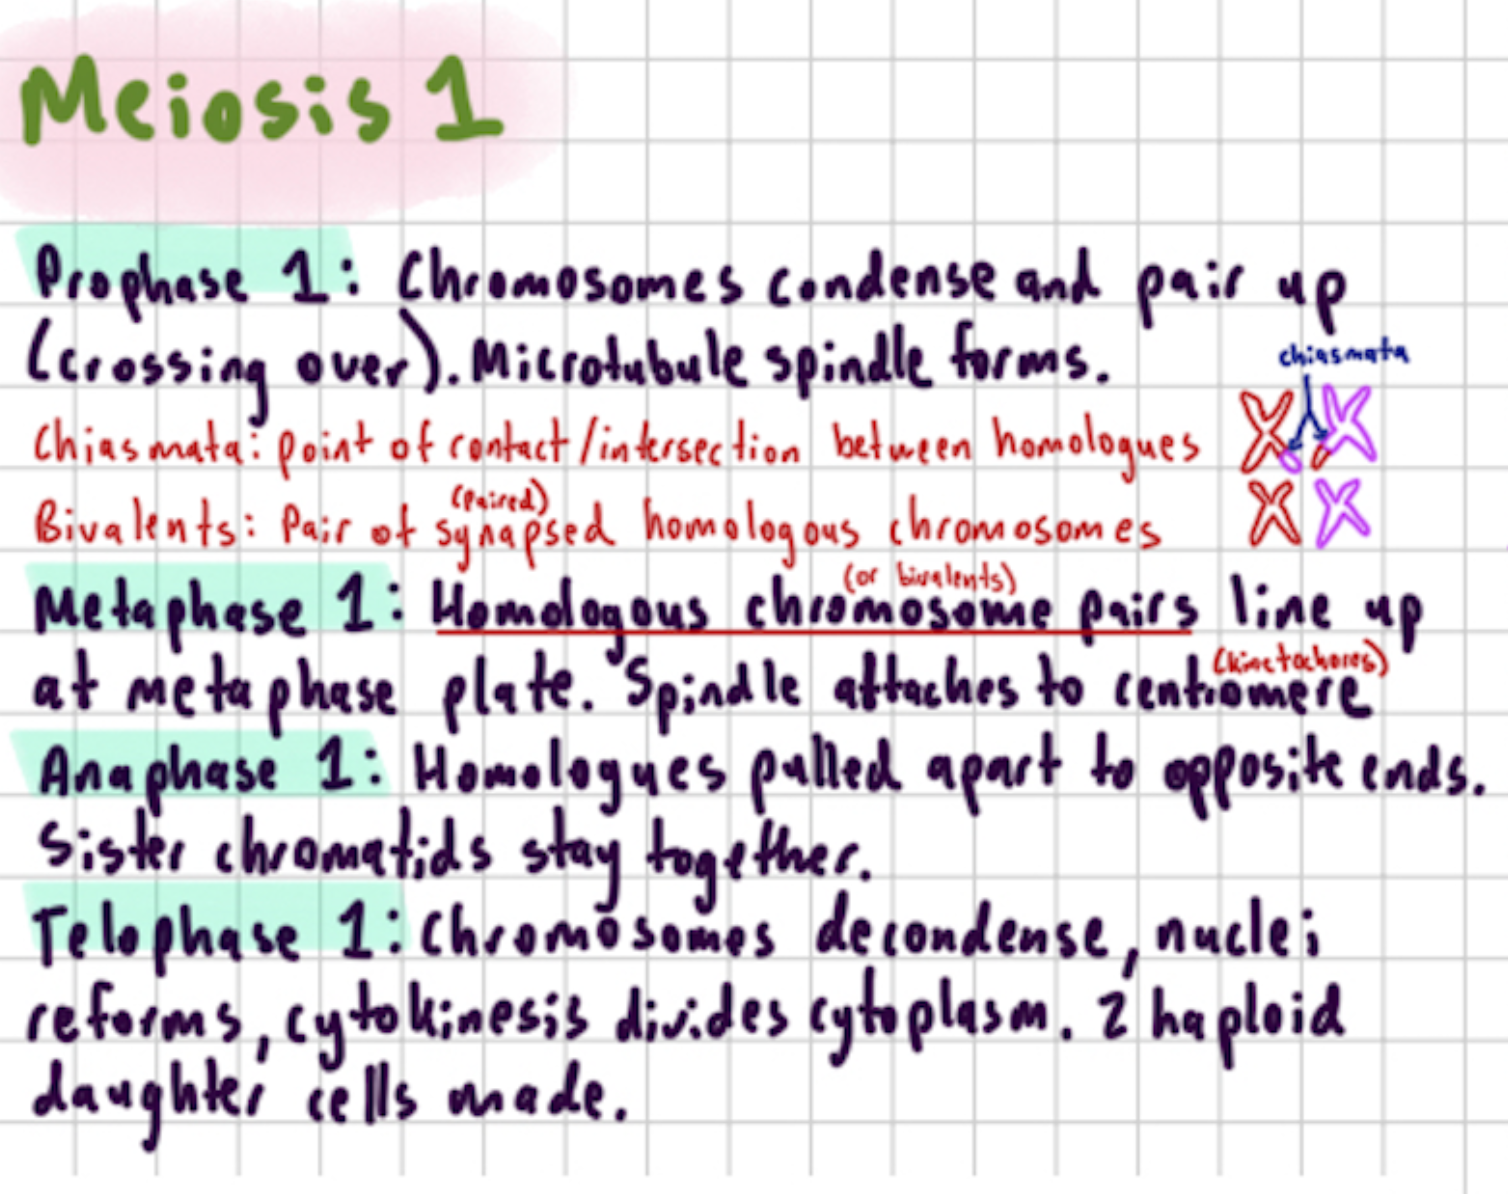 Meiosis 1
Prophase 1: Chromosomes condense and pair up
(crossing over). Microtubule spindle forms.
chiasmata
Chiasmata: point of contact/intersection between homologues
(paired)
Bivalents: Pair of synapsed homologous chromosomes
(or bivalents)
Metaphase 1: Homologous chromosome pairs line up
(kinetochores)
at metaphase plate. Spindle attaches to centromere
Anaphase 1: Homologues pulled apart to opposite ends.
Sister chromatids stay together.
Telophase 1: Chromosomes decondense, nuclei
reforms, cytokinesis divides cytoplasm. 2 haploid
daughter cells made.